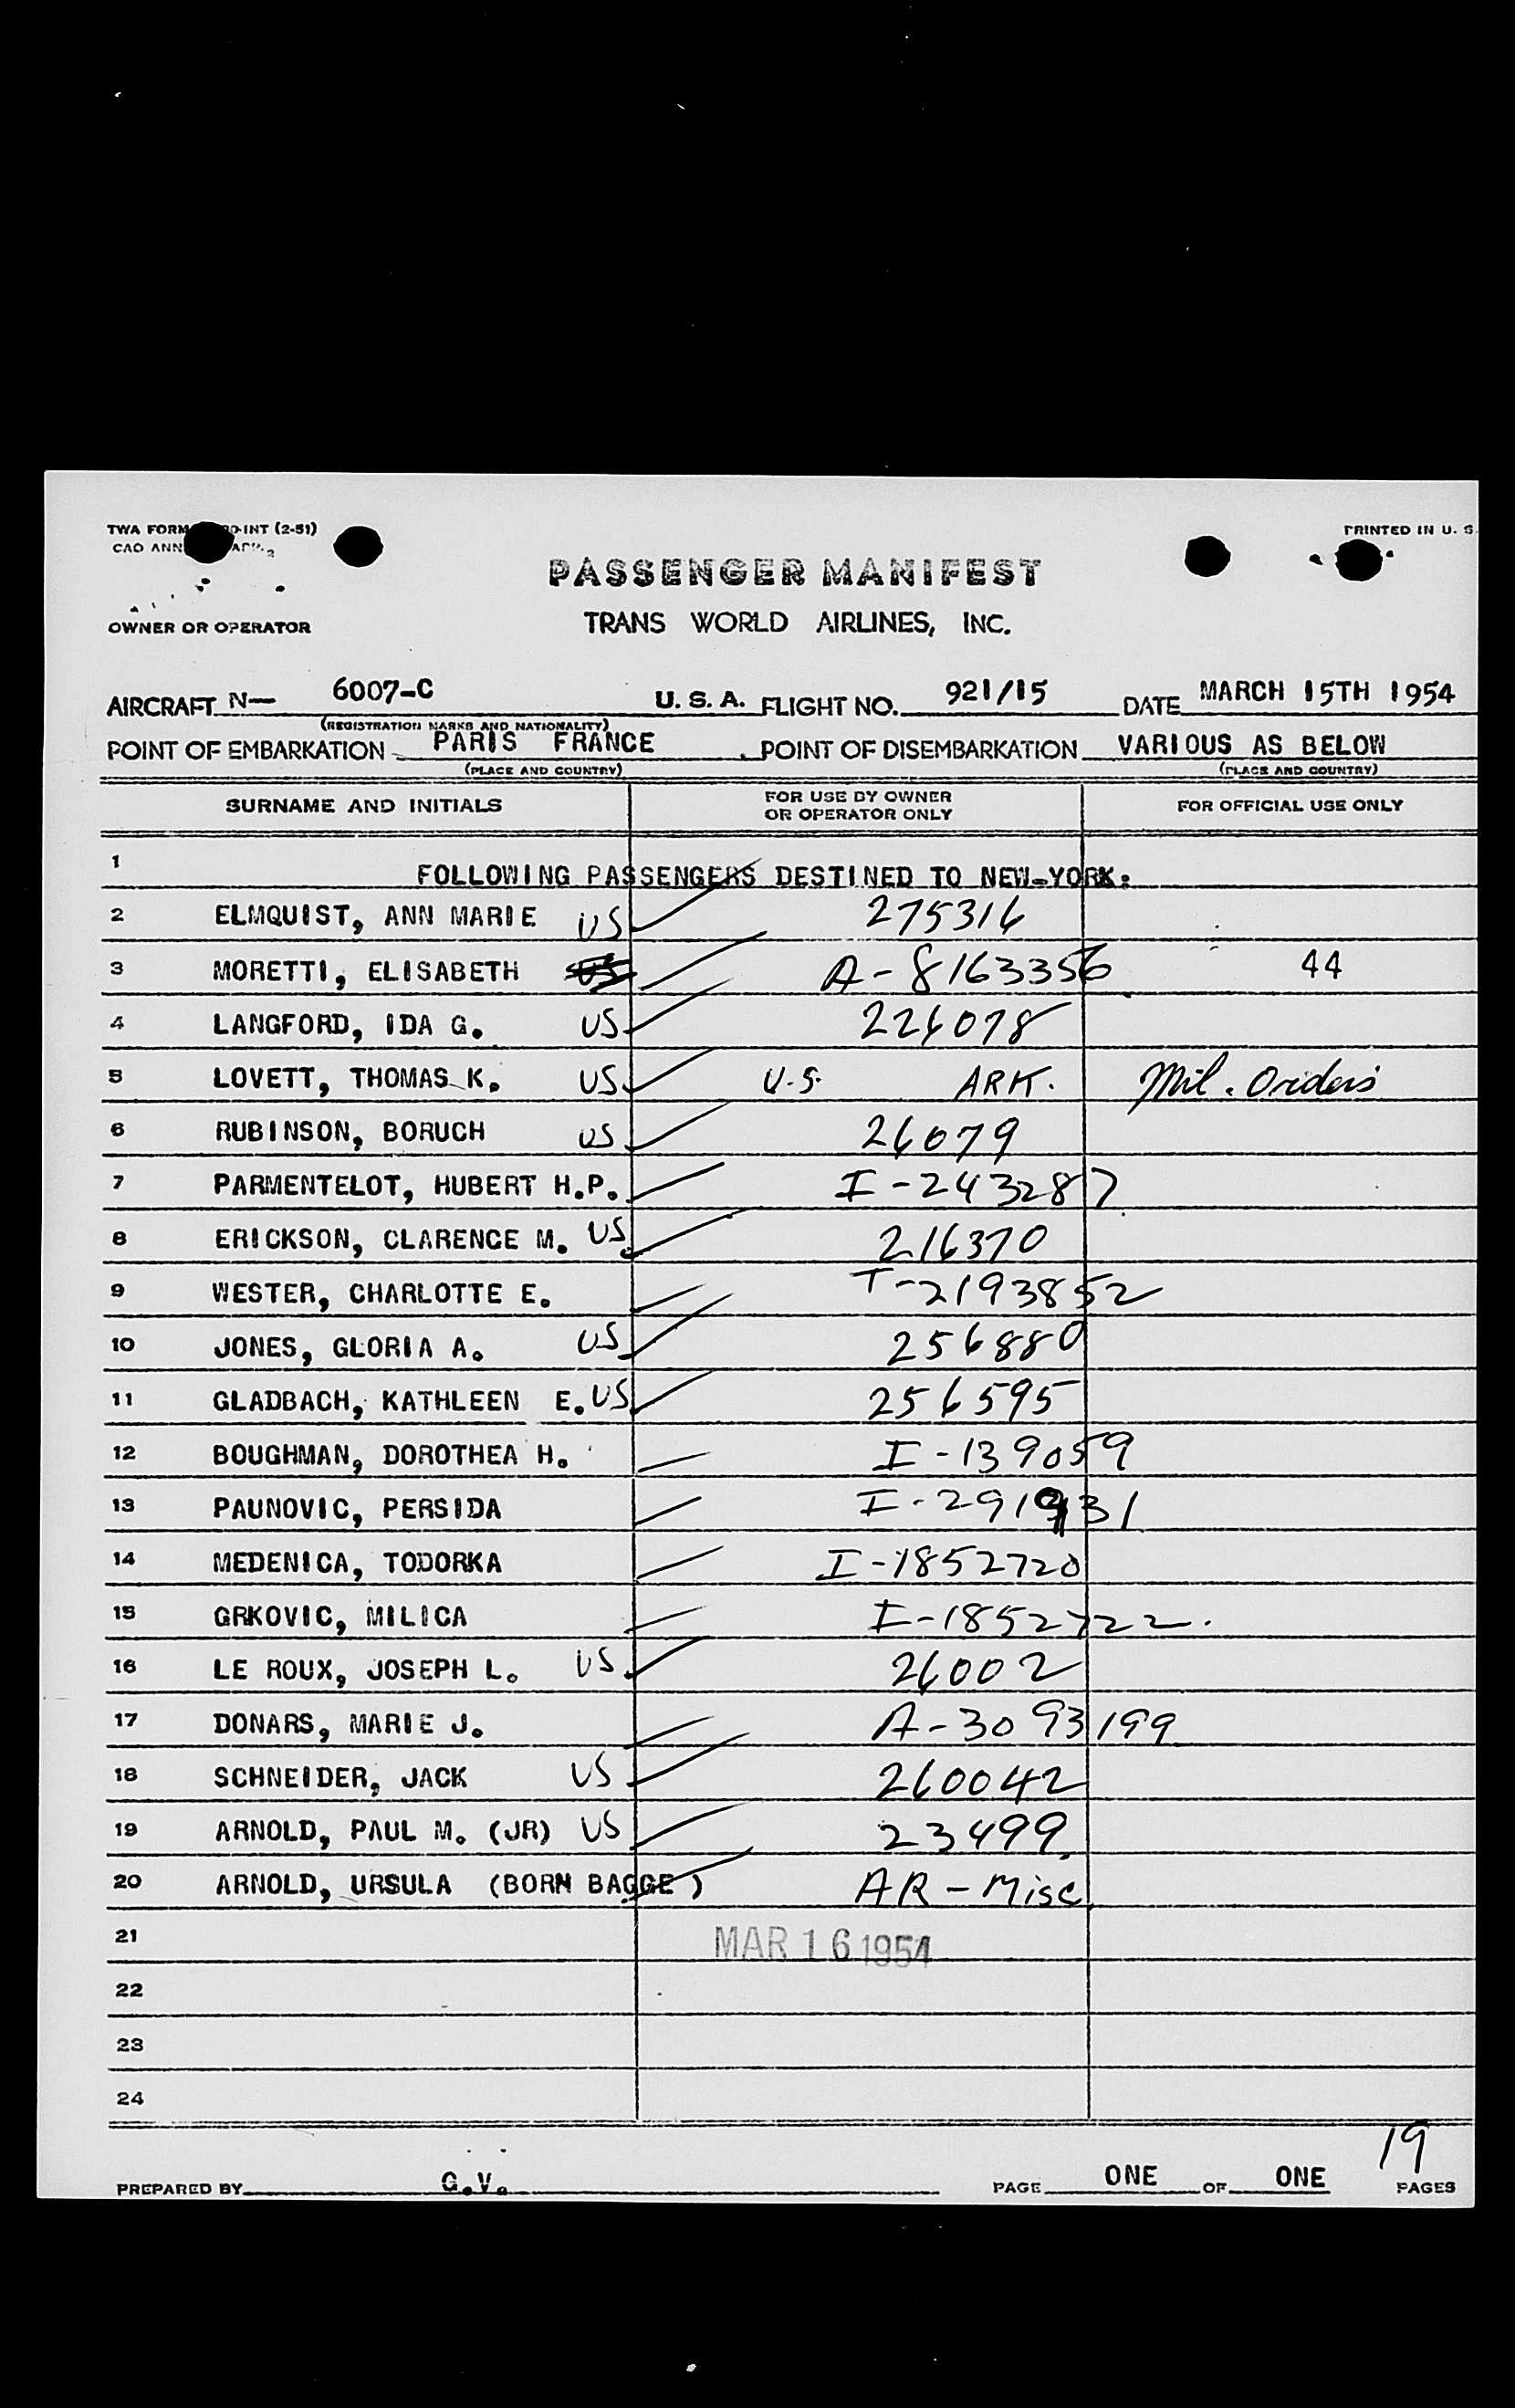 TWA FORM INT (2-51)
PRINTED IN U. S.
CAO ANN
PASSENGER MANIFEST
OWNER OR OPERATOR
TRANS WORLD AIRLINES, INC.
AIRCRAFT N— 6007-C U. S. A. FLIGHT NO. 921/15 DATE MARCH 15TH 1954
(REGISTRATION MARKS AND NATIONALITY)
POINT OF EMBARKATION PARIS FRANCE POINT OF DISEMBARKATION VARIOUS AS BELOW
(PLACE AND COUNTRY) (PLACE AND COUNTRY)
SURNAME AND INITIALS FOR USE BY OWNER OR OPERATOR ONLY FOR OFFICIAL USE ONLY
1 FOLLOWING PASSENGERS DESTINED TO NEW-YORK:
2 ELMQUIST, ANN MARIE US 275316
3 MORETTI, ELISABETH US A-8163356 44
4 LANGFORD, IDA G. US 226078
5 LOVETT, THOMAS K. US U.S. ARK. Mil. Orders
6 RUBINSON, BORUCH US 26079
7 PARMENTELOT, HUBERT H.P. I-243287
8 ERICKSON, CLARENCE M. US 216370
9 WESTER, CHARLOTTE E. T-2193852
10 JONES, GLORIA A. US 256880
11 GLADBACH, KATHLEEN E. US 256595
12 BOUGHMAN, DOROTHEA H. I-139059
13 PAUNOVIC, PERSIDA I-291931
14 MEDENICA, TODORKA I-1852720
15 GRKOVIC, MILICA I-1852722.
16 LE ROUX, JOSEPH L. US 26002
17 DONARS, MARIE J. A-3093199
18 SCHNEIDER, JACK US 260042
19 ARNOLD, PAUL M. (JR) US 23499
20 ARNOLD, URSULA (BORN BAGGE) AR-Misc
21 MAR 16 1954
22
23
24
19
PREPARED BY G.V. PAGE ONE OF ONE PAGES